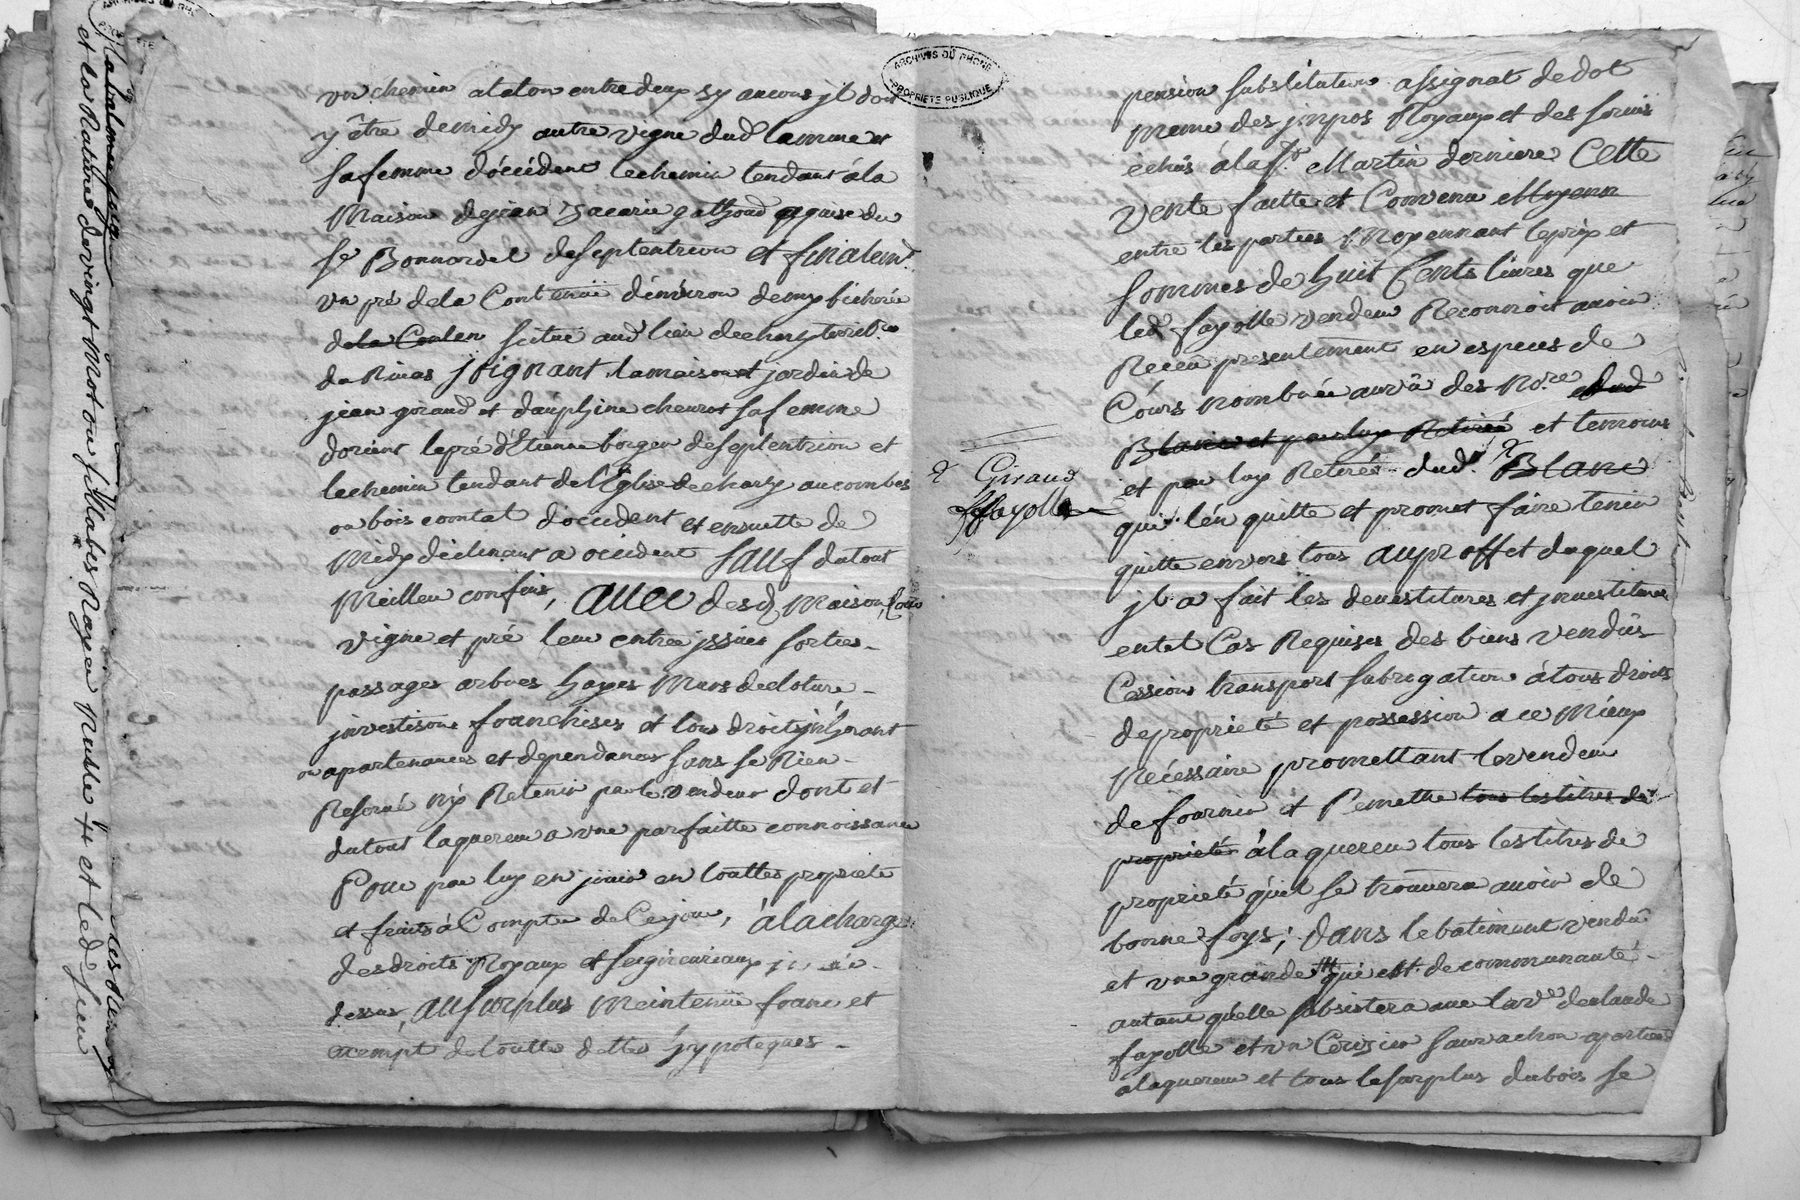 un chemin a talon entre deux sy aucuns jl doit
y être de midy autre vigne dud Lamure et
sa femme d'occident le chemin tendant à la
Maison de jean Zacarie gathoud aquise du
sr Bonnardel de septentrion et finalemt.
un pré de la Contenüe d'environ demy bicherée
scitué aud lieu de charly territre.
du Rivas joignant la maison et jardin de
jean goraud et dauphine chevrot sa femme
d'orient le pré d'Etienne borgen de septentrion et
le chemin tendant de l'Eglise de charly au combes
ou bois comtal d'occident et ensuitte de
Midy déclinant a occident sauf du tout
Meilleur confins, avec desd. Maison,
vigne et pré leur entrée jssües sorties
passages arbres hayes Murs de cloture
jnvestisons franchises et tous droits jnhérant
ou apartenances et dependances sans se Rien
Reservé ny Retenir par le vendeur dont et
du tout laquereur a une parfaitte connoissance
Pour par luy en jouir en touttes proprieté
et fruits à Compter de Ce jour, à la charge
des droits Royaux et seigneuriaux
dessus, au surplus Meintenüe franc et
exempt de toutte dettes hypoteques
ARCHIVES DU RHONE
PROPRIÉTÉ PUBLIQUE
pension substitution assignat de dot
meme des jmpos Royaux et des servis
echûs à la st. Martin derniere Cette
vente faitte et Convenu Moyenn
entre les parties Moyennant le prix et
sommes de huit Cents livres que
led fayolle vendeur Reconnoit avoir
Receu presentement en especes de
Cours nombrée au vû des Nore. dud
Blanc et par luy Retirée et temoins
et par luy Retirés dud. Blanc
Giraud
fayolle
qui l'en quitte et promet faire tenir
quitte envers tous au proffet duquel
jl a fait les devestitures et jnvestitures
en tel Cas Requises des biens vendûs
Cession transport subrogation à tous droits
de proprieté et possession a ce Mieux
Nécessaire promettant le vendeur
de fournir et Remettre tous les titres de
proprieté à laquereur tous les titres de
proprieté qu'il se trouvera avoir de
bonne foys; Dans le batiment vendû
et une grande qui est de communauté
autant quelle subsistera avec
fayolle et un Cerizier sauvachon apartient
a laquereur et tous le surplus du bois se
et la Rature de vingt mot ou sillabes Rayer Nulle et led sieur